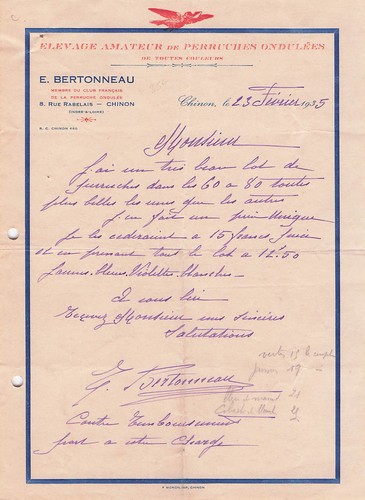 ELEVAGE AMATEUR DE PERRUCHES ONDULÉES
DE TOUTES COULEURS
E. BERTONNEAU
MEMBRE DU CLUB FRANÇAIS
DE LA PERRUCHE ONDULÉE
8, RUE RABELAIS — CHINON
(INDRE-&-LOIRE)
R. C. CHINON
Chinon, le 23 Février 1935
Monsieur
J'ai un très beau lot de
perruches dans les 60 a 80 toutes
plus belles les unes que les autres
J'en fait un prix unique
Je les cederaint a 15 francs pièce
et en prenant tout le lot a 12f50
Jaunes, bleus, Violettes, blanches
A vous lire
Recevez Monsieur mes sincères
Salutations
vertes 15 le couple
jaunes 19
21
E. Bertonneau
Contre Remboursement
port a votre charge
CHINON